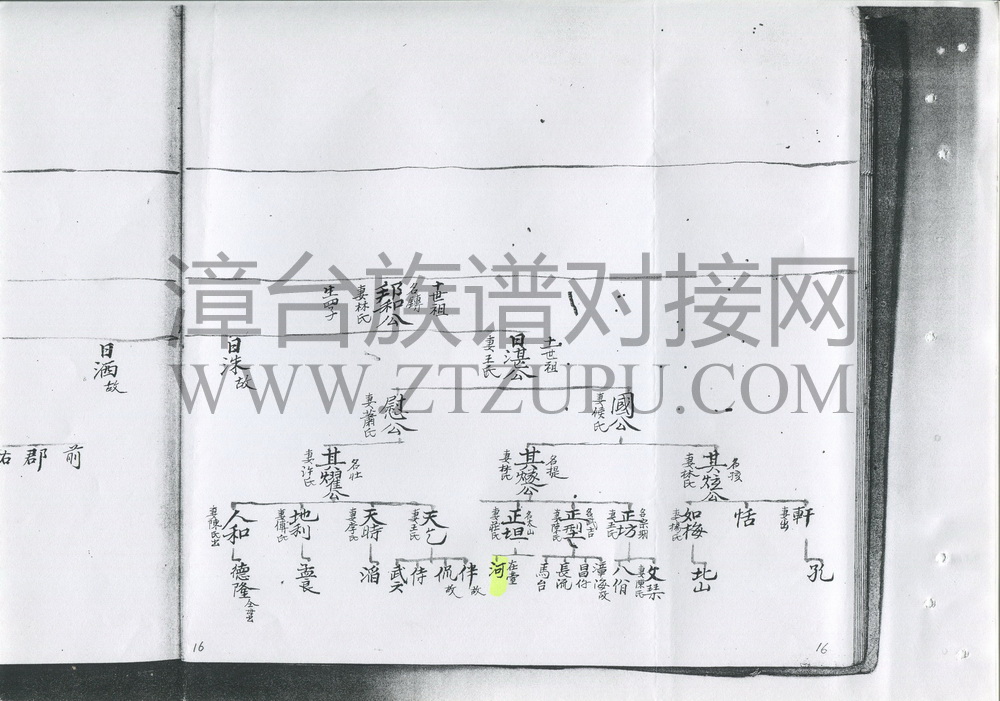 十世祖
名鏄
邦和公
妻林氏
生四子
十一世祖
日湛公
妻王氏
日洙故
日洒故
國公
妻侯氏
慰公
妻蕭氏
前
郡
右
其炫公
妻林氏
名提
其燧公
妻林氏
名壯
其耀公
妻許氏
軒
妻出
恬
如梅
妻楊氏
正坊
妻王氏
名武吉
正型
妻陳氏
正垣
妻莊氏
天乞
妻王氏
天時
妻李氏
地利
妻傅氏
人和
妻陳氏出
孔
北山
文琴
妻陳氏
八伯
昌仔
長泥
馬台
在臺
河
伴故
侃故
侍
武
滔
孟良
德隆
16
16
漳台族谱对接网
WWW.ZTZUPU.COM